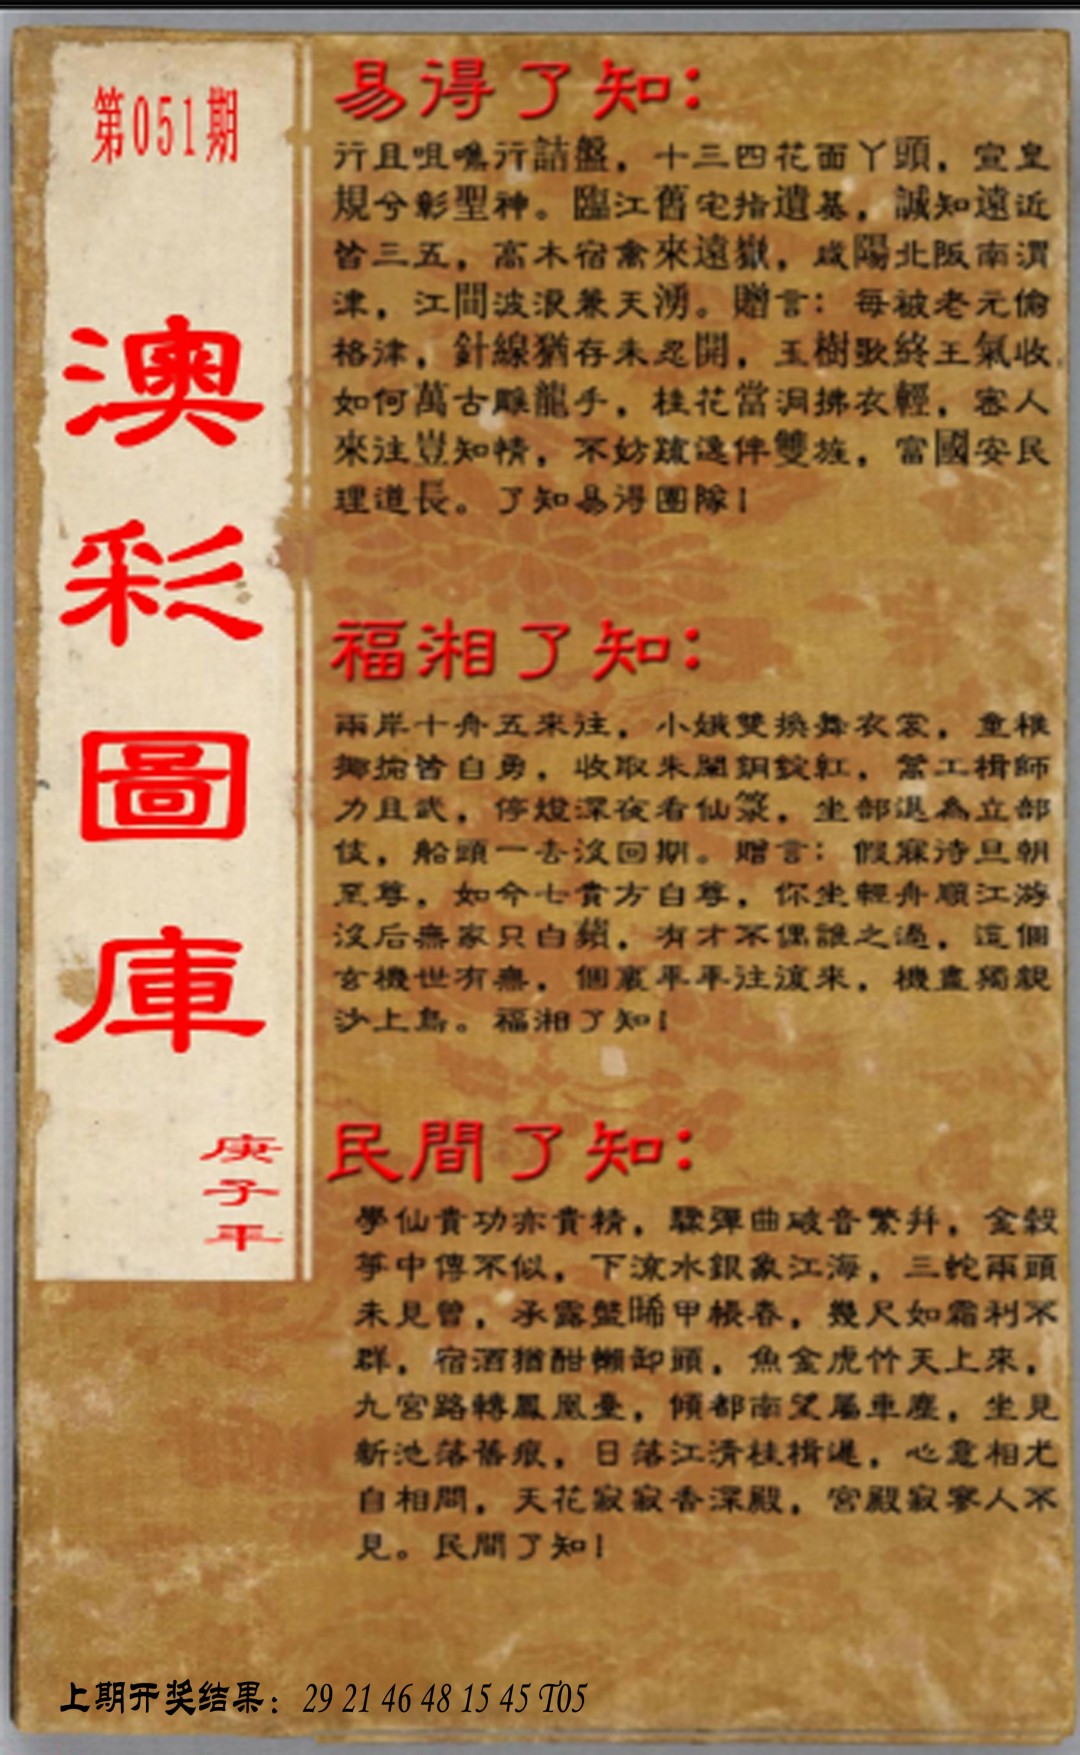 第051期
澳彩圖庫
庚子年
易得了知：
行且咀嚼行詰盤，十三四花面丫頭，宣皇
規兮彰聖神。臨江舊宅指遺基，誠知遠近
皆三五，高木宿禽來遠嶽，咸陽北阪南渭
津，江間波浪兼天湧。贈言：每被老元偷
格津，針線猶存未忍開，玉樹歌終王氣收
如何萬古雕龍手，桂花當洞拂衣輕，客人
來往豈知情，不妨疏逸伴雙旌，富國安民
理道長。了知易得團隊！
福湘了知：
兩岸十舟五來往，小娥雙換舞衣裳，童稚
攏自勇，收取朱闌銅錠紅，篙工楫師
力且武，停燈深夜看仙箓，坐部退為立部
伎，船頭一去沒回期。贈言：假寐待旦朝
至尊，如今七貴方自尊，你坐輕舟順江游
沒后無家只白蘋，有才不偶誰之過，這個
玄機世有無，個裏平平往復來，機盡獨親
沙上鳥。福湘了知！
民間了知：
學仙貴功亦貴精，驟彈曲破音繁并，金穀
箏中傳不似，下流水銀象江海，三蛇兩頭
未見曾，承露盤晞甲帳春，幾尺如霜利不
群，宿酒猶酣懶卸頭，魚金虎竹天上來，
九宮路轉鳳凰臺，傾都南望屬車塵，坐見
新池落舊痕，日落江清桂楫遲，心意相尤
自相問，天花寂寂香深殿，宮殿寂寥人不
見。民間了知！
上期开奖结果：29 21 46 48 15 45 T05